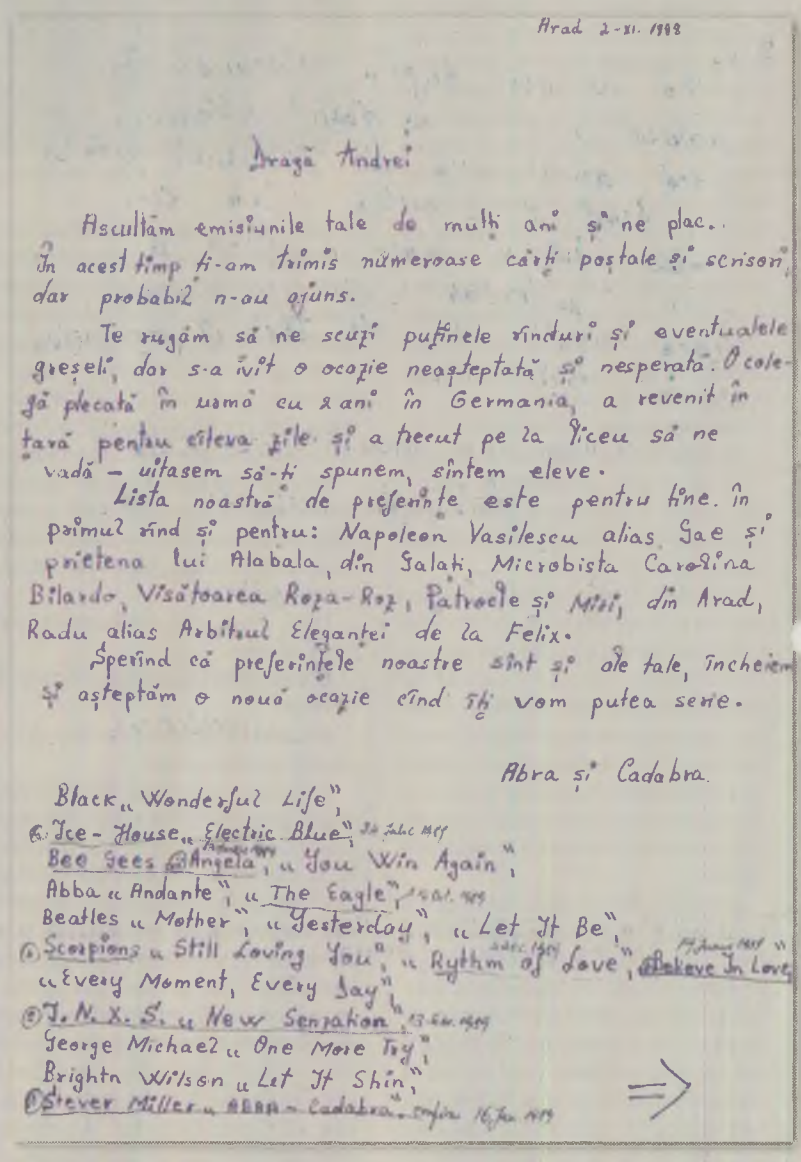 Arad 2-XI. 1988
Dragă Andrei
Ascultăm emisiunile tale de mulți ani și ne plac..
În acest timp ți-am trimis numeroase cărți poștale și scrisori,
dar probabil n-au ajuns.
Te rugăm să ne scuzi puținele rînduri și eventualele
greșeli, dar s-a ivit o ocazie neașteptată și nesperată. O cole-
gă plecată în urmă cu 2 ani în Germania, a revenit în
țară pentru cîteva zile și a trecut pe la liceu să ne
vadă – uitasem să-ți spunem, sîntem eleve.
Lista noastră de preferințe este pentru tine în
primul rînd și pentru: Napoleon Vasilescu alias Gae și
prietena lui Alabala, din Galați, Microbista Carolina
Bilardo, Visătoarea Roza-Roz, Patrocle și Miri, din Arad,
Radu alias Arbitrul Eleganței de la Felix.
Sperînd că preferințele noastre sînt și ale tale, încheiem
și așteptăm o nouă ocazie cînd îți vom putea scrie.
Abra și Cadabra.
Black „Wonderful Life",
Ice-House „Electric Blue", 1989
Bee Gees Angela", „You Win Again",
Abba „Andante", „The Eagle", 1989
Beatles „Mother", „Yesterday", „Let It Be",
Scorpions „Still Loving You", „Rythm of Love", „Believe In Love"
„Every Moment, Every Day",
I.N.X.S. „New Senzation", 1989
George Michael „One More Try",
Brightn Wilson „Let It Shin",
Stever Miller „ABRA-Cadabra". 16 Jan 1989